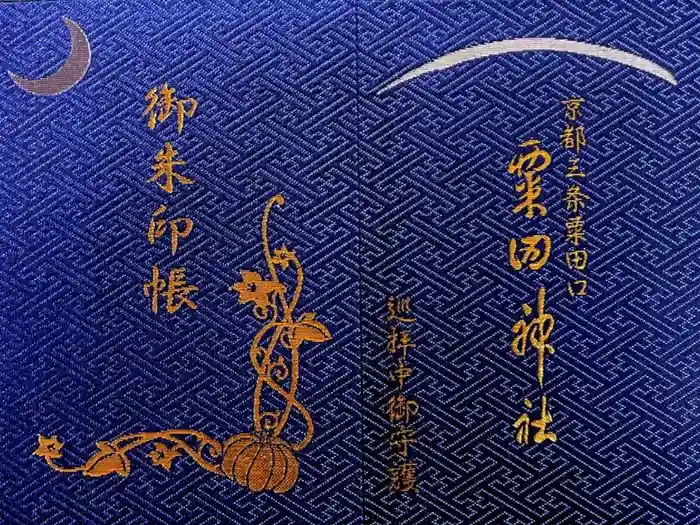 御朱印帳
京都三条粟田口
粟田神社
巡拝中御守護